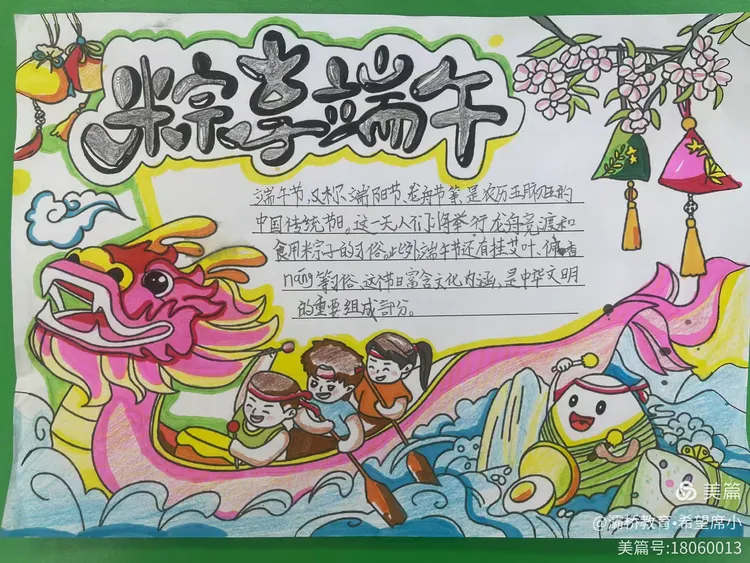 粽享端午
端午节,又称端阳节、龙舟节等,是农历五月初五的
中国传统节日。这一天人们将举行龙舟竞渡和
食用粽子的习俗。此外端午节还有挂艾叶、佩香
nang等习俗。这个节日富含文化内涵,是中华文明
的重要组成部分。
美篇
@灞桥教育•希望席小
美篇号:18060013